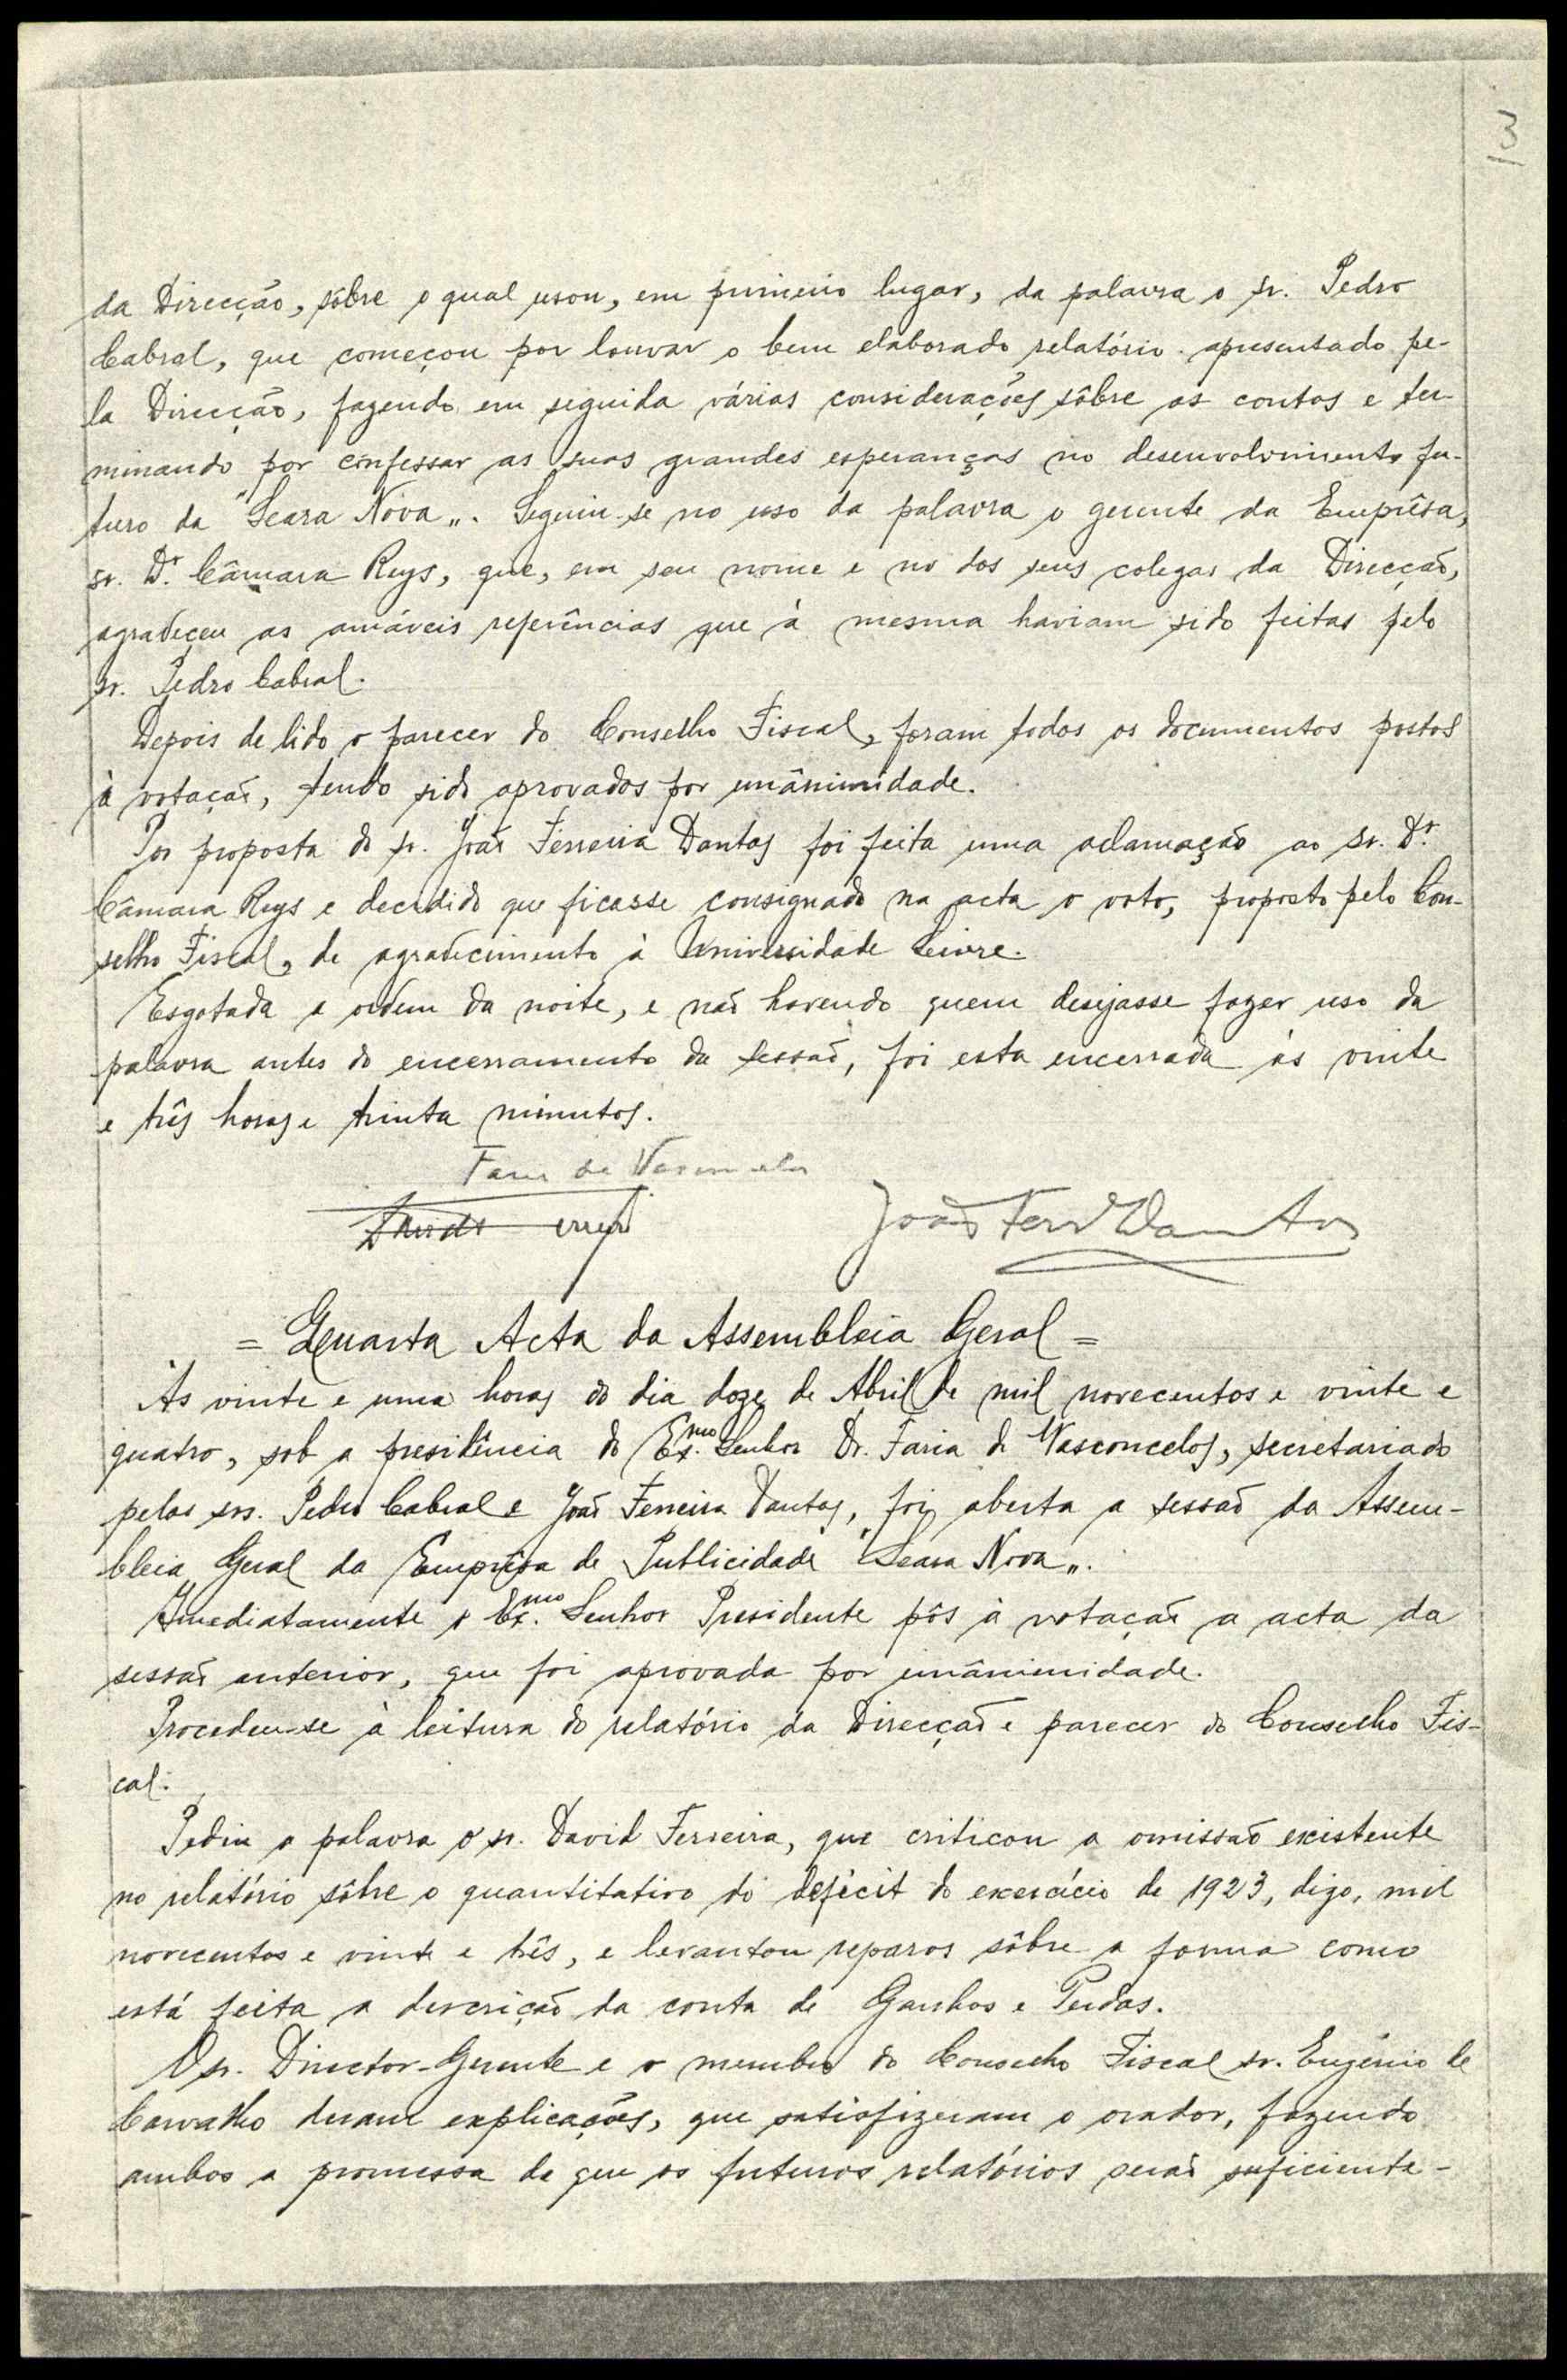 3
da Direcção, sôbre o qual usou, em primeiro lugar, da palavra o sr. Pedro
Cabral, que começou por louvar o bem elaborado relatório apresentado pe-
la Direcção, fazendo em seguida várias considerações sôbre as contas e ter-
minando por confessar as suas grandes esperanças no desenvolvimento fu-
turo da "Seara Nova„. Seguiu-se no uso da palavra o gerente da Emprêsa,
sr. Dr. Câmara Reys, que, em seu nome e no dos seus colegas da Direcção,
agradeceu as amáveis referências que à mesma haviam sido feitas pelo
sr. Pedro Cabral.
Depois de lido o parecer do Conselho Fiscal, foram todos os documentos postos
à votação, tendo sido aprovados por unânimidade.
Por proposta do sr. João Ferreira Dantas foi feita uma aclamação ao sr. Dr.
Câmara Reys e decidido que ficasse consignado na acta o voto, proposto pelo Con-
selho Fiscal, de agradecimento à Universidade Livre.
Esgotada a ordem da noite, e não havendo quem desejasse fazer uso da
palavra antes do encerramento da sessão, foi esta encerrada às vinte
e três horas e trinta minutos.
Faria de Vasconcelos
João Ferr Dantas
= Quarta Acta da Assembleia Geral =
Às vinte e uma horas do dia doze de Abril de mil novecentos e vinte e
quatro, sob a presidência do Ex.mo Senhor Dr. Faria de Vasconcelos, secretariado
pelos srs. Pedro Cabral e João Ferreira Dantas, foi aberta a sessão da Assem-
bleia Geral da Emprêsa de Publicidade "Seara Nova„.
Imediatamente o Ex.mo Senhor Presidente pôs à votação a acta da
sessão anterior, que foi aprovada por unânimidade.
Procedeu-se à leitura do relatório da Direcção e parecer do Conselho Fis-
cal.
Pediu a palavra o sr. David Ferreira, que criticou a omissão existente
no relatório sôbre o quantitativo do deficit do exercício de 1923, digo, mil
novecentos e vinte e três, e levantou reparos sôbre a forma como
está feita a descrição da conta de Ganhos e Perdas.
O sr. Director-Gerente e o membro do Conselho Fiscal sr. Eugénio de
Carvalho deram explicações, que satisfizeram o orador, fazendo
ambos a promessa de que os futuros relatórios serão suficiente-